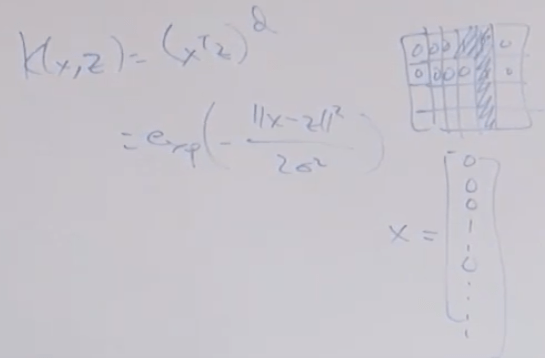 K(x,z) = (xᵀz)ᵈ
= exp(- ||x-z||² / 2σ²)
0 0 0 0
0 0 0 0 0
x = [0
0
0
1
:
0
:
:
1]